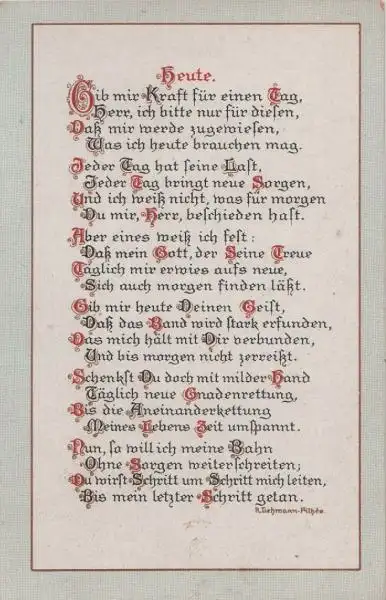 Heute.
Gib mir Kraft für einen Tag,
Herr, ich bitte nur für diesen,
Daß mir werde zugewiesen,
Was ich heute brauchen mag.
Jeder Tag hat seine Last,
Jeder Tag bringt neue Sorgen,
Und ich weiß nicht, was für morgen
Du mir, Herr, beschieden hast.
Aber eines weiß ich fest:
Daß mein Gott, der Seine Treue
Täglich mir erwies aufs neue,
Sich auch morgen finden läßt.
Gib mir heute Deinen Geist,
Daß das Band wird stark erfunden,
Das mich hält mit Dir verbunden,
Und bis morgen nicht zerreißt.
Schenkst Du doch mit milder Hand
Täglich neue Gnadenrettung,
Bis die Aneinanderkettung
Meines Lebens Zeit umspannt.
Nun, so will ich meine Bahn
Ohne Sorgen weiterschreiten;
Du wirst Schritt um Schritt mich leiten,
Bis mein letzter Schritt getan.
R. Tiehmann-Filhés